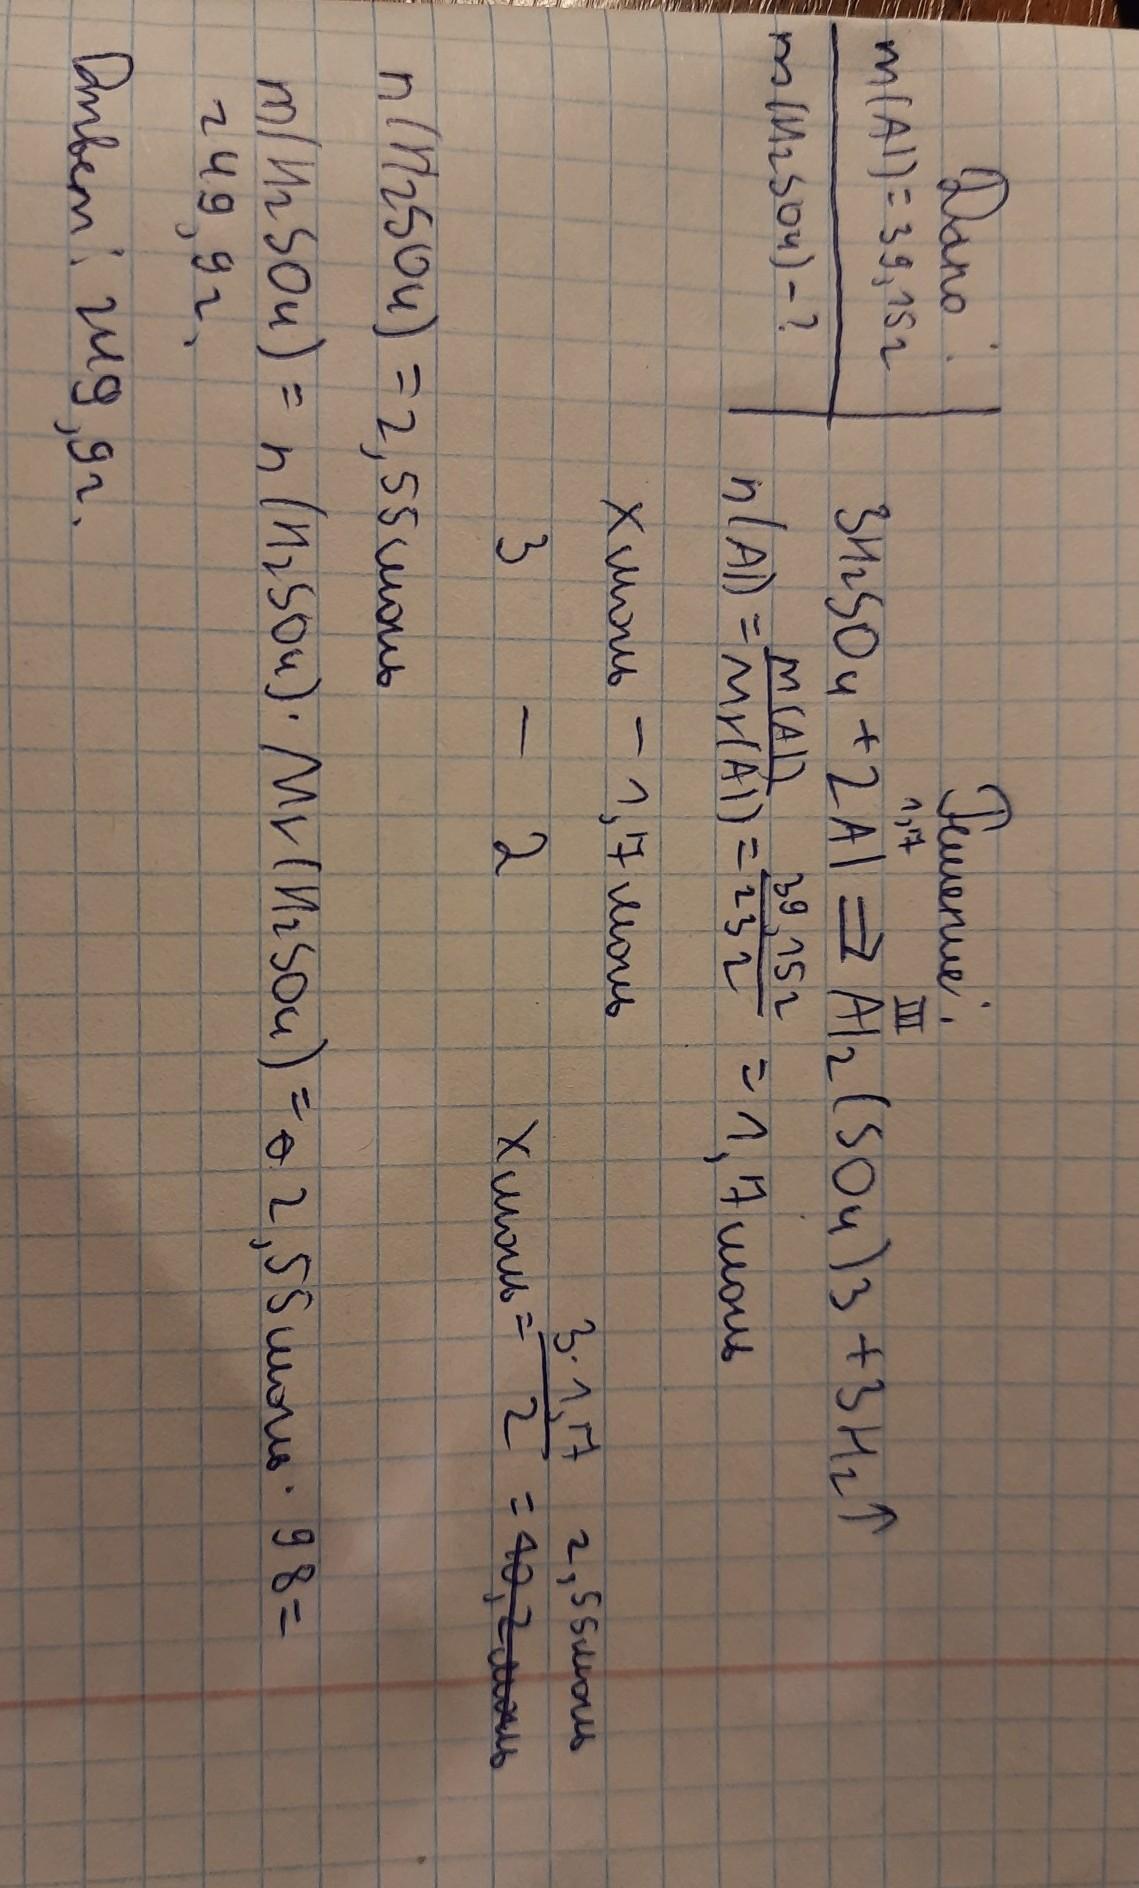 Дано:
m(Al)=39,15г
m(H2SO4)-?
Решение:
1,17 III
3H2SO4 + 2Al => Al2(SO4)3 + 3H2↑
n(Al) = m(Al) / Mr(Al) = 39,15г / 23г = 1,7моль
Xмоль - 1,7моль
3 - 2
Xмоль = 3·1,7 / 2 = 2,55моль
n(H2SO4) = 2,55моль
m(H2SO4) = n(H2SO4)·Mr(H2SO4) = 2,55моль·98=
249,9г.
Ответ: 249,9г.